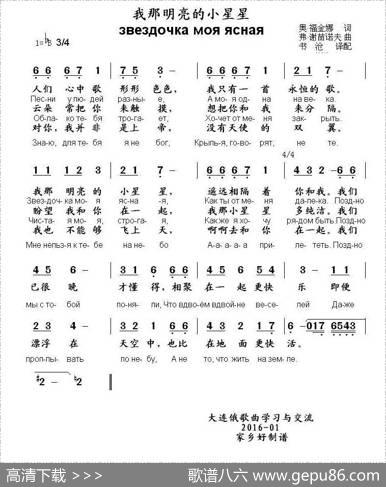 我那明亮的小星星
звездочка моя ясная
奥·福金娜 词
弗·谢苗诺夫 曲
书 沧 译配
1=♭B 3/4
6 6 6 7 1 7 5 3 - 6 6 6 7 1 7 6 6 6
人们 心中歌 形形 色色， 我只有一 首 永恒的 歌。
Пес-ни у лю-дей раз-ны-е, А мо-я од-на на ве-ка.
云朵 常把你 来触 摸， 想把你和 我 来分 隔。
Об-ла-ко те-бя тро-га-ет, Хо-чет от ме-ня зак-рыть.
对你，我并非 是上 帝， 没有天使 的 双 翼。
Зна-ю, для те-бя я не бог, Крыль-я, го-во-рят, не те.
4/4
1 1 1 2 3 2 1 3 -
我那 明亮的 小星 星， 遥远相隔 着 你和我。我们
Звез-доч-ка мо-я яс-на-я, Как ты от ме-ня да-ле-ка. Позд-но
盼望 我和你 在一 起， 我那小星 星 多纯洁。我们
Чис-та-я мо-я, стро-га-я, Как же я хо-чу ря-дом быть. Позд-но
我也 不能够 飞上 天， 啊啊去和 你 在一起。我们
Мне нель-зя к те-бе на не-бо А-а-а-а-а при-ле-теть. Позд-но
4 5 6 - 3 1 6 6 6 6 5 4 3 - 1 1
已很 晚 才懂 得，相聚 在 一起 更快 乐 即便
мы с то-бой по-ня-ли, Что вдво-ём вдвой-не ве-се-лей Да-же
2 3 4 - 5 4 3 2 1 3 2 1 7 6 - 017 6543
漂浮 在 天空 中，也比 在地 面 更快 活。
проп-лы-вать по не-бу, А не то, что жить на зем-ле.
#2 - #2 -
大连俄歌曲学习与交流
2016-01
家乡好制谱
高清下载 >>>
歌谱八六 www.gepu86.com